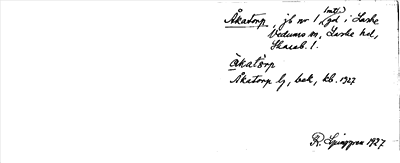 Åkatorp, jb nr 1 (mtl) gd i Laske
Vedums sn, Laske hd,
Skarab. l.
Åkatorp by, bek, kb. 1927
R. Ljunggren 1927